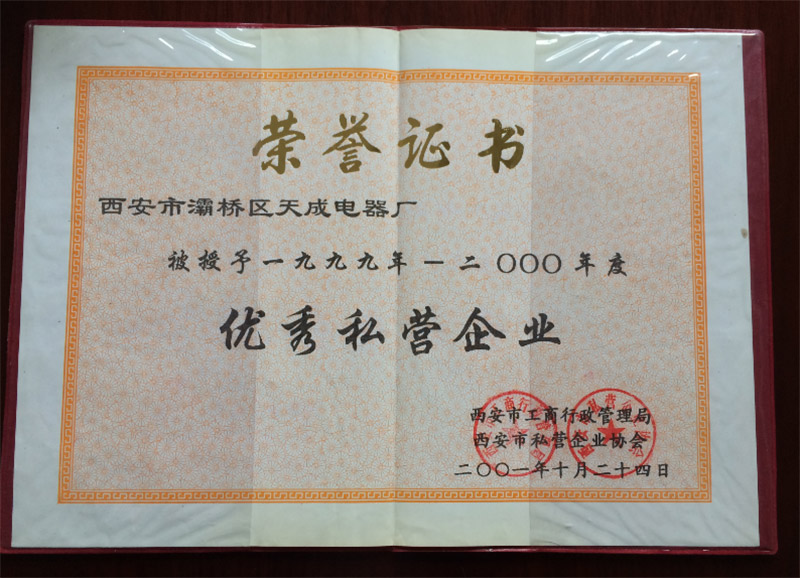 荣誉证书
西安市灞桥区天成电器厂
被授予一九九九年－二〇〇〇年度
优秀私营企业
西安市工商行政管理局
西安市私营企业协会
二〇〇一年十月二十四日